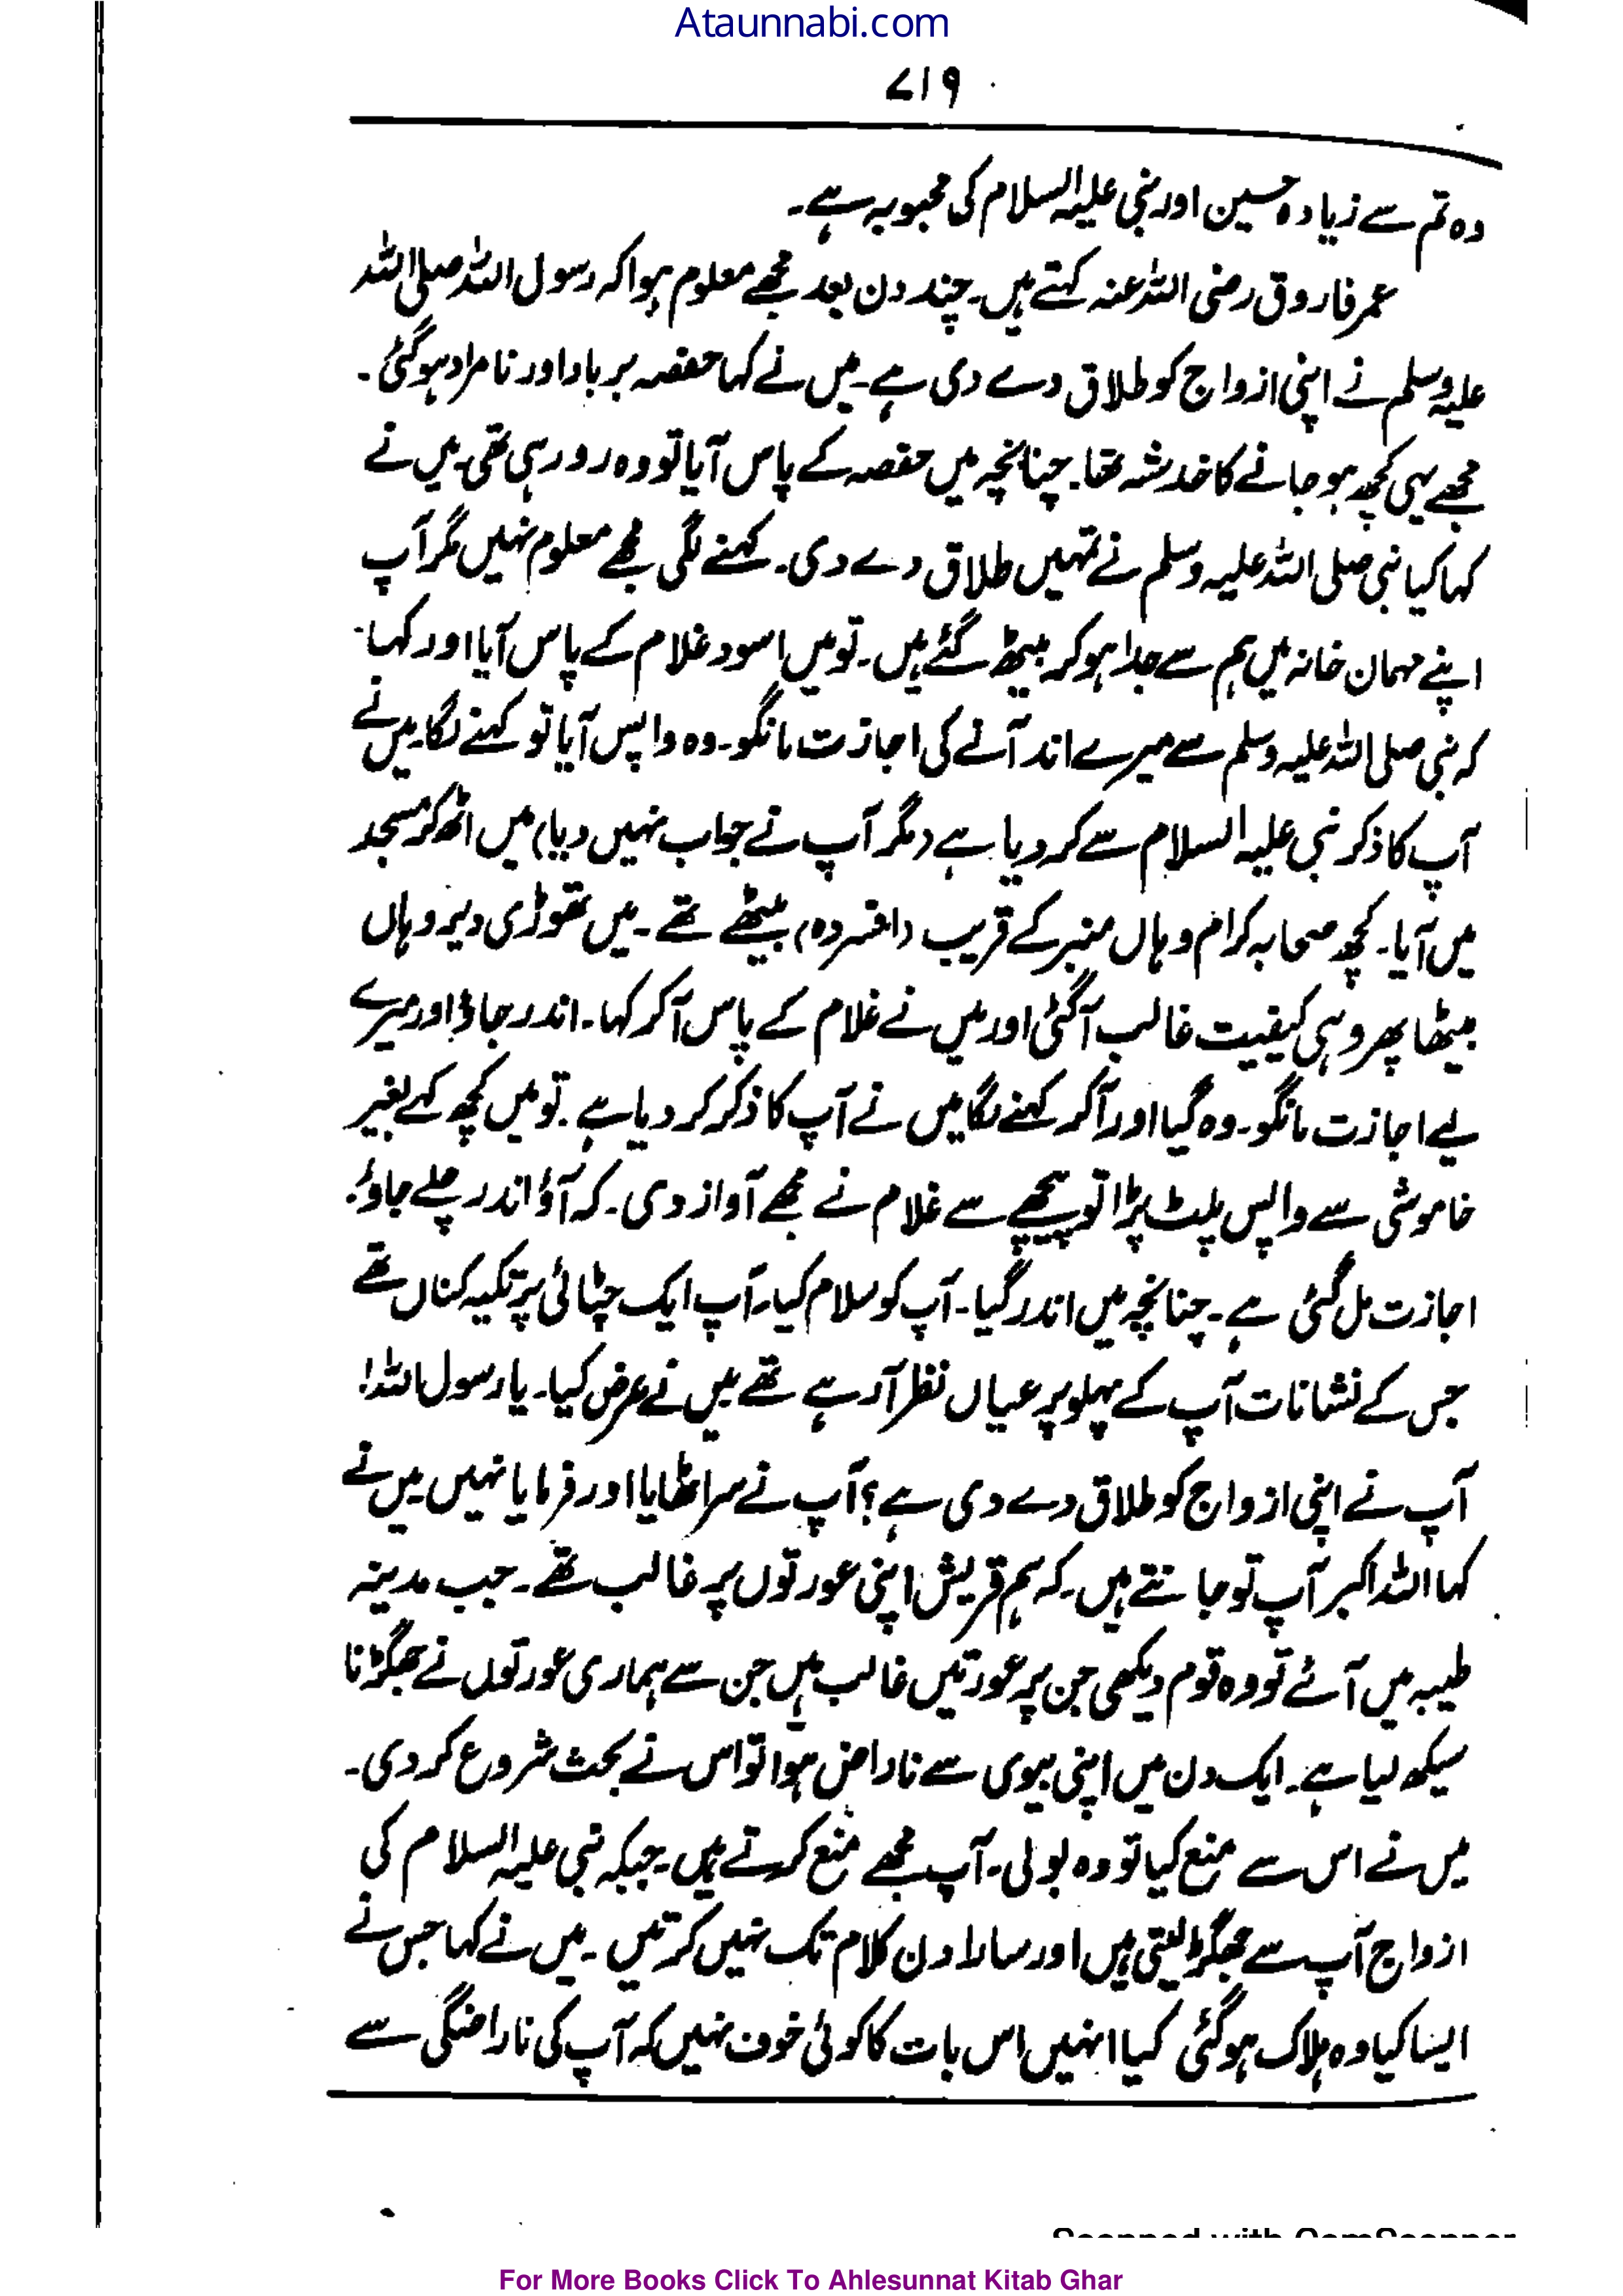 Ataunnabi.com
۷۱۹
وہ تم سے زیادہ حسین اور نبی علیہ السلام کی محبوبہ ہے۔
عمر فاروق رضی اللہ عنہ کہتے ہیں۔ چند دن بعد مجھے معلوم ہوا کہ رسول اللہ صلی اللہ
علیہ وسلم نے اپنی ازواج کو طلاق دے دی ہے۔ میں نے کہا حفصہ برباد اور نامراد ہوگئی۔
مجھے یہی کچھ ہو جانے کا خدشہ تھا۔ چنانچہ میں حفصہ کے پاس آیا تو وہ رو رہی تھی۔ میں نے
کہا کیا نبی صلی اللہ علیہ وسلم نے تمہیں طلاق دے دی۔ کہنے لگی مجھے معلوم نہیں مگر آپ
اپنے مہمان خانہ میں ہم سے جدا ہو کر بیٹھ گئے ہیں۔ تو میں اسود غلام کے پاس آیا اور کہا۔
کہ نبی صلی اللہ علیہ وسلم سے میرے اند آنے کی اجازت مانگو۔ وہ واپس آیا تو کہنے لگا۔ میں نے
آپ کا ذکر نبی علیہ السلام سے کر دیا ہے (مگر آپ نے جواب نہیں دیا) میں اٹھ کر مسجد
میں آیا۔ کچھ صحابہ کرام وہاں منبر کے قریب (افسردہ) بیٹھے تھے۔ میں تھوڑی دیر وہاں
بیٹھا پھر وہی کیفیت غالب آگئی اور میں نے غلام کے پاس آکر کہا۔ اندر جاؤ اور میرے
لیے اجازت مانگو۔ وہ گیا اور آکر کہنے لگا میں نے آپ کا ذکر کر دیا ہے۔ تو میں کچھ کہے بغیر
خاموشی سے واپس پلٹ پڑا تو پیچھے سے غلام نے مجھے آواز دی۔ کہ آؤ اندر چلے جاؤ،
اجازت مل گئی ہے۔ چنانچہ میں اندر گیا۔ آپ کو سلام کیا۔ آپ ایک چٹائی پر تکیہ کناں تھے
جس کے نشانات آپ کے پہلو پر عیاں نظر آرہے تھے میں نے عرض کیا۔ یا رسول اللہ!
آپ نے اپنی ازواج کو طلاق دے دی ہے؟ آپ نے سر اٹھایا اور فرمایا نہیں میں نے
کہا اللہ اکبر آپ تو جانتے ہیں۔ کہ ہم قریش اپنی عورتوں پر غالب تھے۔ جب مدینہ
طیبہ میں آئے تو وہ قوم دیکھی جن پر عورتیں غالب ہیں جن سے ہماری عورتوں نے جھگڑنا
سیکھ لیا ہے۔ ایک دن میں اپنی بیوی سے ناراض ہوا تو اس نے بحث شروع کر دی۔
میں نے اس سے منع کیا تو وہ بولی۔ آپ مجھے منع کرتے ہیں۔ جبکہ نبی علیہ السلام کی
ازواج آپ سے جھگڑ لیتی ہیں اور سارا دن کلام تک نہیں کرتیں۔ میں نے کہا جس نے
ایسا کیا وہ ہلاک ہوگئی کیا انہیں اس بات کا کوئی خوف نہیں کہ آپ کی ناراضگی سے
Scanned with CamScanner
For More Books Click To Ahlesunnat Kitab Ghar